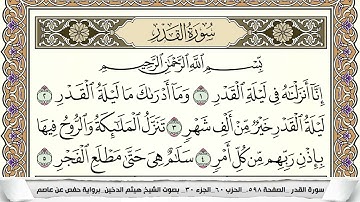 سُورَةُ الْقَدْرِ
بِسْمِ اللَّهِ الرَّحْمَٰنِ الرَّحِيمِ
إِنَّا أَنزَلْنَاهُ فِي لَيْلَةِ الْقَدْرِ ١ وَمَا أَدْرَىٰكَ مَا لَيْلَةُ الْقَدْرِ ٢
لَيْلَةُ الْقَدْرِ خَيْرٌ مِّنْ أَلْفِ شَهْرٍ ٣ تَنَزَّلُ الْمَلَٰٓئِكَةُ وَالرُّوحُ فِيهَا
بِإِذْنِ رَبِّهِم مِّن كُلِّ أَمْرٍ ٤ سَلَٰمٌ هِيَ حَتَّىٰ مَطْلَعِ الْفَجْرِ ٥
سورة القدر _الصفحة ٥٩٨_ الحزب ٦٠_الجزء ٣٠_ بصوت الشيخ هيثم الدخين_ برواية حفص عن عاصم